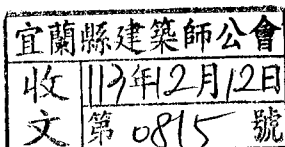 宜蘭縣建築師公會
收文
113年12月12日
第0815號